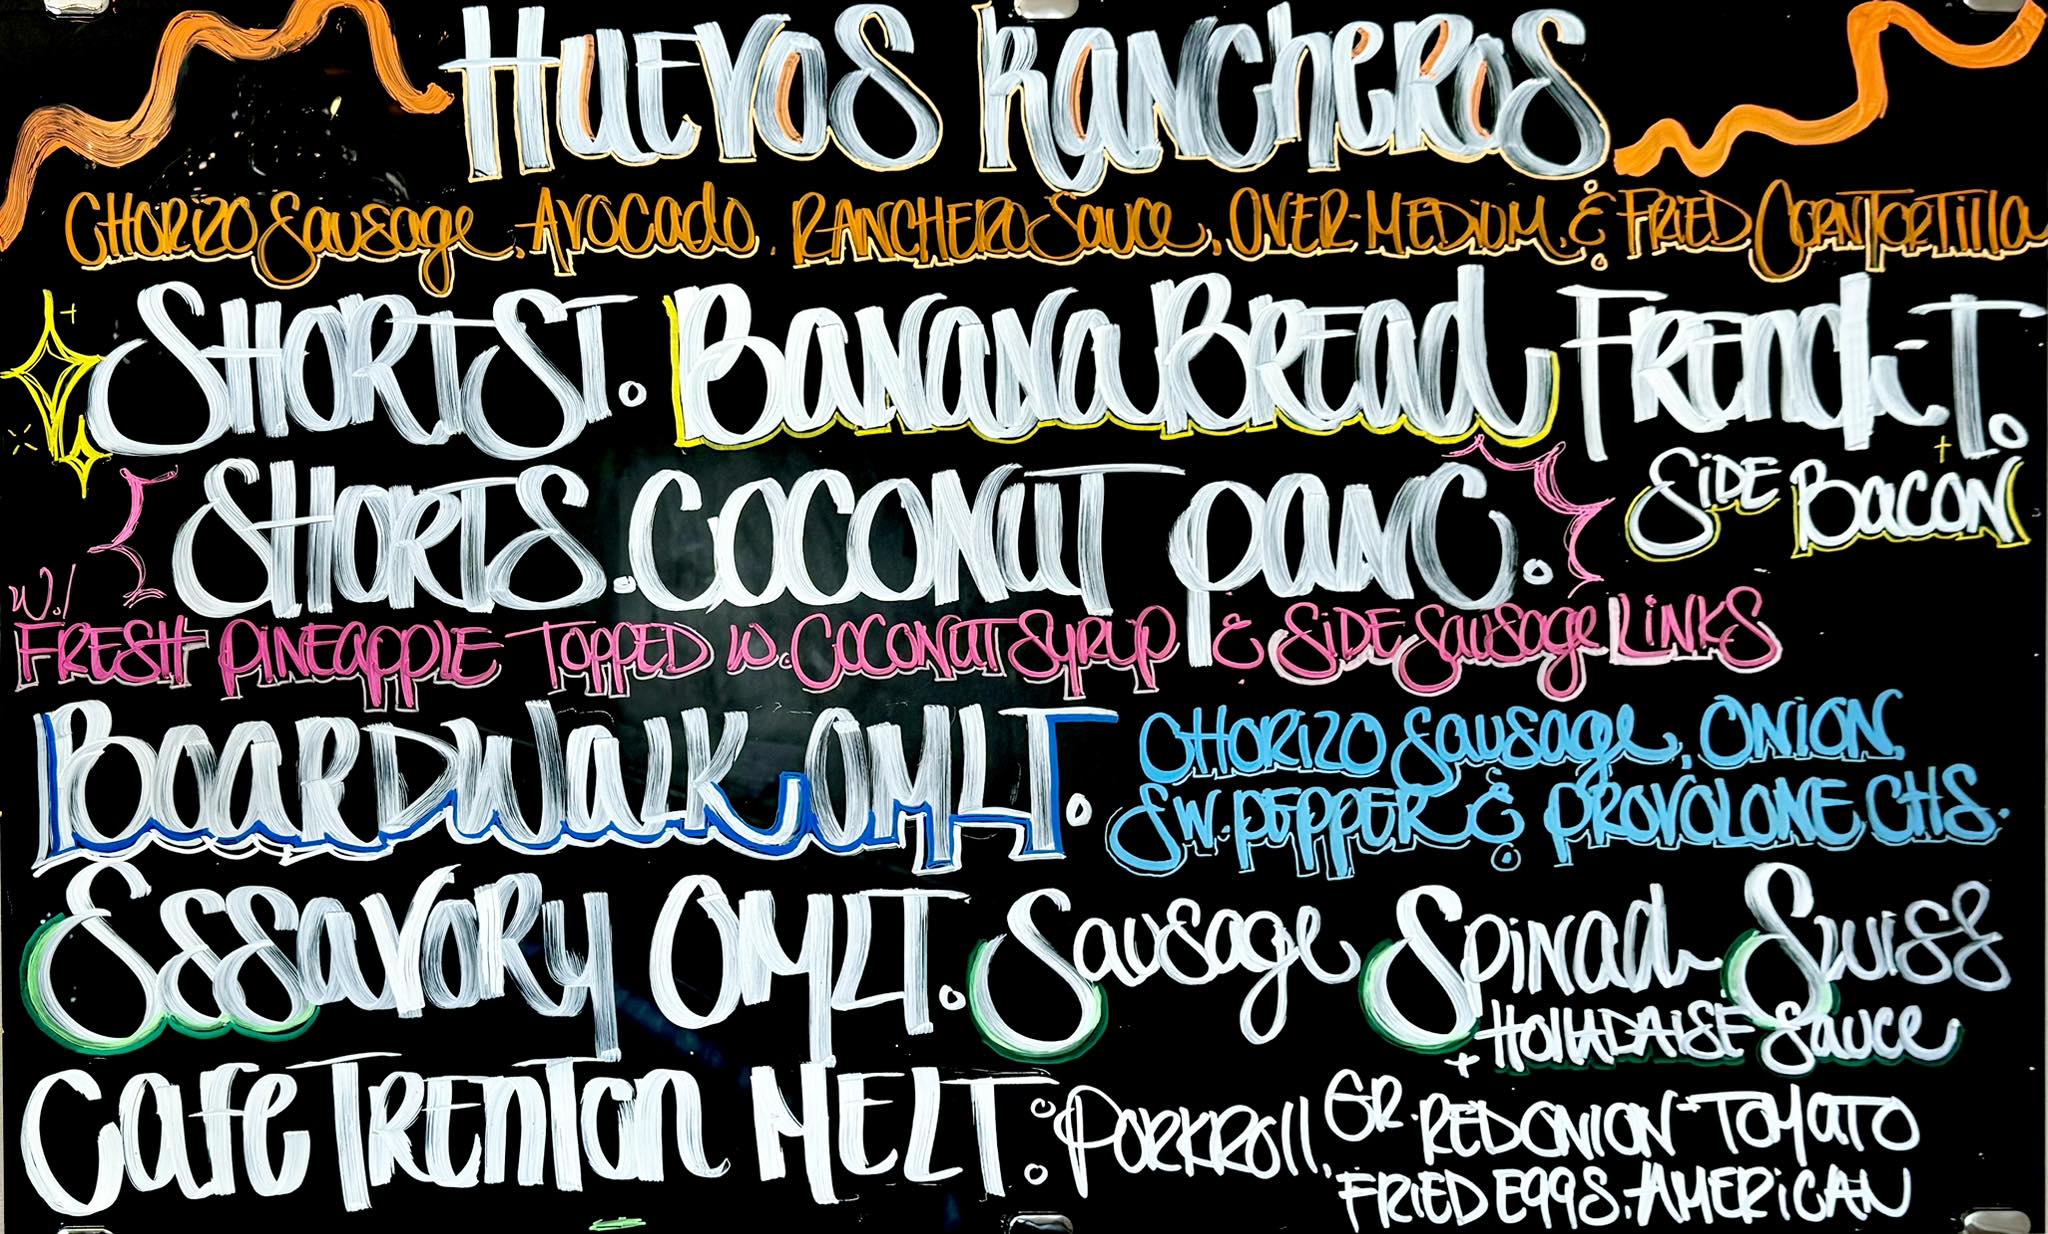 HUEVOS RANCHEROS
CHORIZO SAUSAGE, AVOCADO, RANCHERO SAUCE, OVER-MEDIUM, & FRIED CORN TORTILLA
SHORT ST. BANANA BREAD FRENCH-T.
+ SIDE BACON
SHORT S. COCONUT PANC.
W./
FRESH PINEAPPLE TOPPED W. COCONUT SYRUP & SIDE SAUSAGE LINKS
BOARDWALK OMLT.
CHORIZO SAUSAGE, ONION,
SW. PEPPER & PROVOLONE CHS.
ESSAVORY OMLT. SAUSAGE SPINACH SWISS
+ HOLLADAISE SAUCE
CAFE TRENTON MELT: PORKROLL, GR. RED ONION - TOMATO
FRIED EGGS. AMERICAN